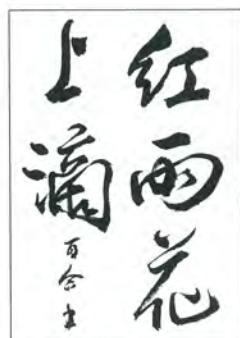 红雨花
上滴
百合书